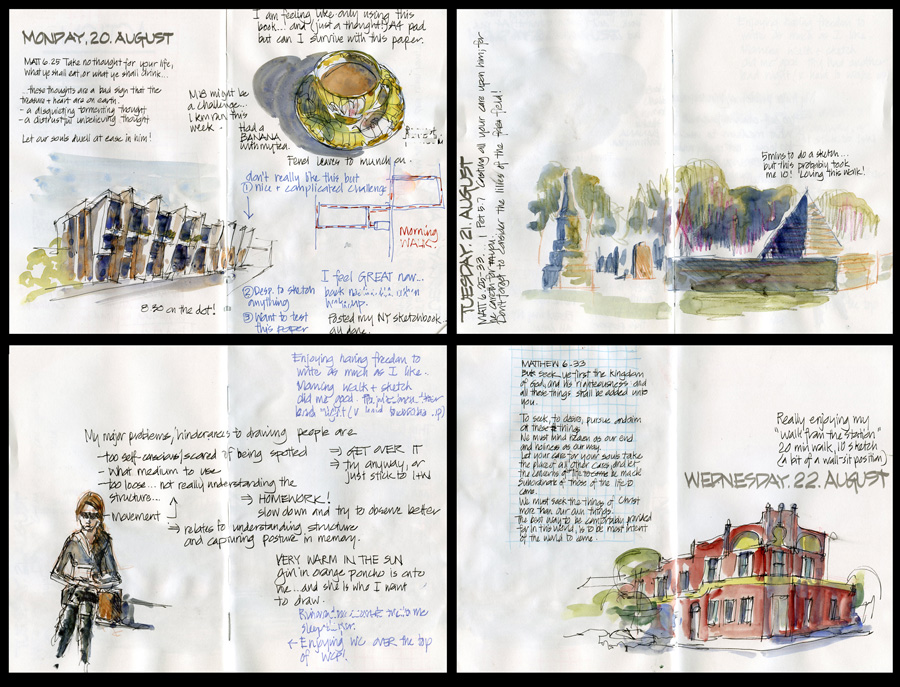 MONDAY. 20. AUGUST
MATT 6.25 Take no thought for your life,
what ye shall eat, or what ye shall drink...
...these thoughts are a bad sign that the
treasure + heart are on earth.
- a disquieting tormenting thought
- a distrustful unbelieving thought
Let our souls dwell at ease in him!
8.30 on the dot!
I am feeling like only using this
book... and (just a thought!) A4 pad
but can I survive with this paper.
M18 might be
a challenge...
I km run this
week.
Had a
BANANA
with my tea.
Fenel leaves to munch on.
don't really like this but
① nice + complicated challenge
② Desp. to sketch
anything
③ Want to test
this paper
Morning
WALK
I feel GREAT now...
Posted my NY sketchbook
TUESDAY. 21. AUGUST
MATT 6.25-33. 1 Pet 5.7 Casting all your care upon him; for
Don't forget to consider the lilies of the field!
5 mins to do a sketch...
but this probably took
me 10! Loving this walk!
Enjoying having freedom to
write as much as I like..
Morning walk + sketch
did me good.
My major problems/hinderances to drawing people are
- too self-conscious/scared of being spotted
⇒ GET OVER IT
- What medium to use
⇒ try anyway, or
just stick to I+W
- too loose... not really understanding the
structure...
⇒ HOMEWORK!
slow down and try to observe better
- Movement
⇒ relates to understanding structure
and capturing posture in memory.
VERY WARM IN THE SUN
Girl in orange poncho is onto
me...and she is who I want
to draw.
← Enjoying WC over the top
of WCP!
MATTHEW 6-33
But seek ye first the kingdom
of God, and his righteousness; and
all these things shall be added unto
you.
To seek, to desire, pursue and aim
at these things
We must mind heaven as our end
and holiness as our way.
Let your care for your souls take
the place of all other cares, and let
the concerns of this life to come be made
subordinate of those of the life to
come.
We must seek the things of Christ
more than our own things.
The best way to be comfortably provided
for in this world, is to be most intent
of the world to come.
Really enjoying my
"walk from the station"
20 min walk, 10 sketch
(a bit of a wall-sit position)
WEDNESDAY. 22. AUGUST